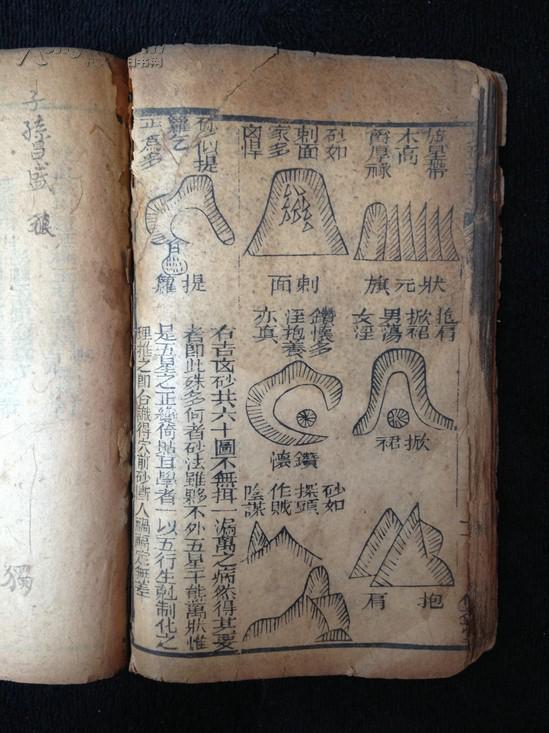 砂似提
籮乞
正為多
砂如
刺面
家多
凶悍
木高
爵厚祿
提籮
刺面
狀元旗
鑽懷多
淫抱養
亦真
抱肩
掀裙
男蕩
女淫
鑽懷
掀裙
砂如
探頭
作賊
陰謀
抱肩
右吉凶砂共六十圖不無掛一漏萬之病然得其要
者即此殊多何者砂法雖夥不外五星千態萬狀惟
是五星之正變倚貼耳學者一以五行生剋制化之
理推之即台識得穴前砂斷人禍福定無差
子孫昌盛
獨